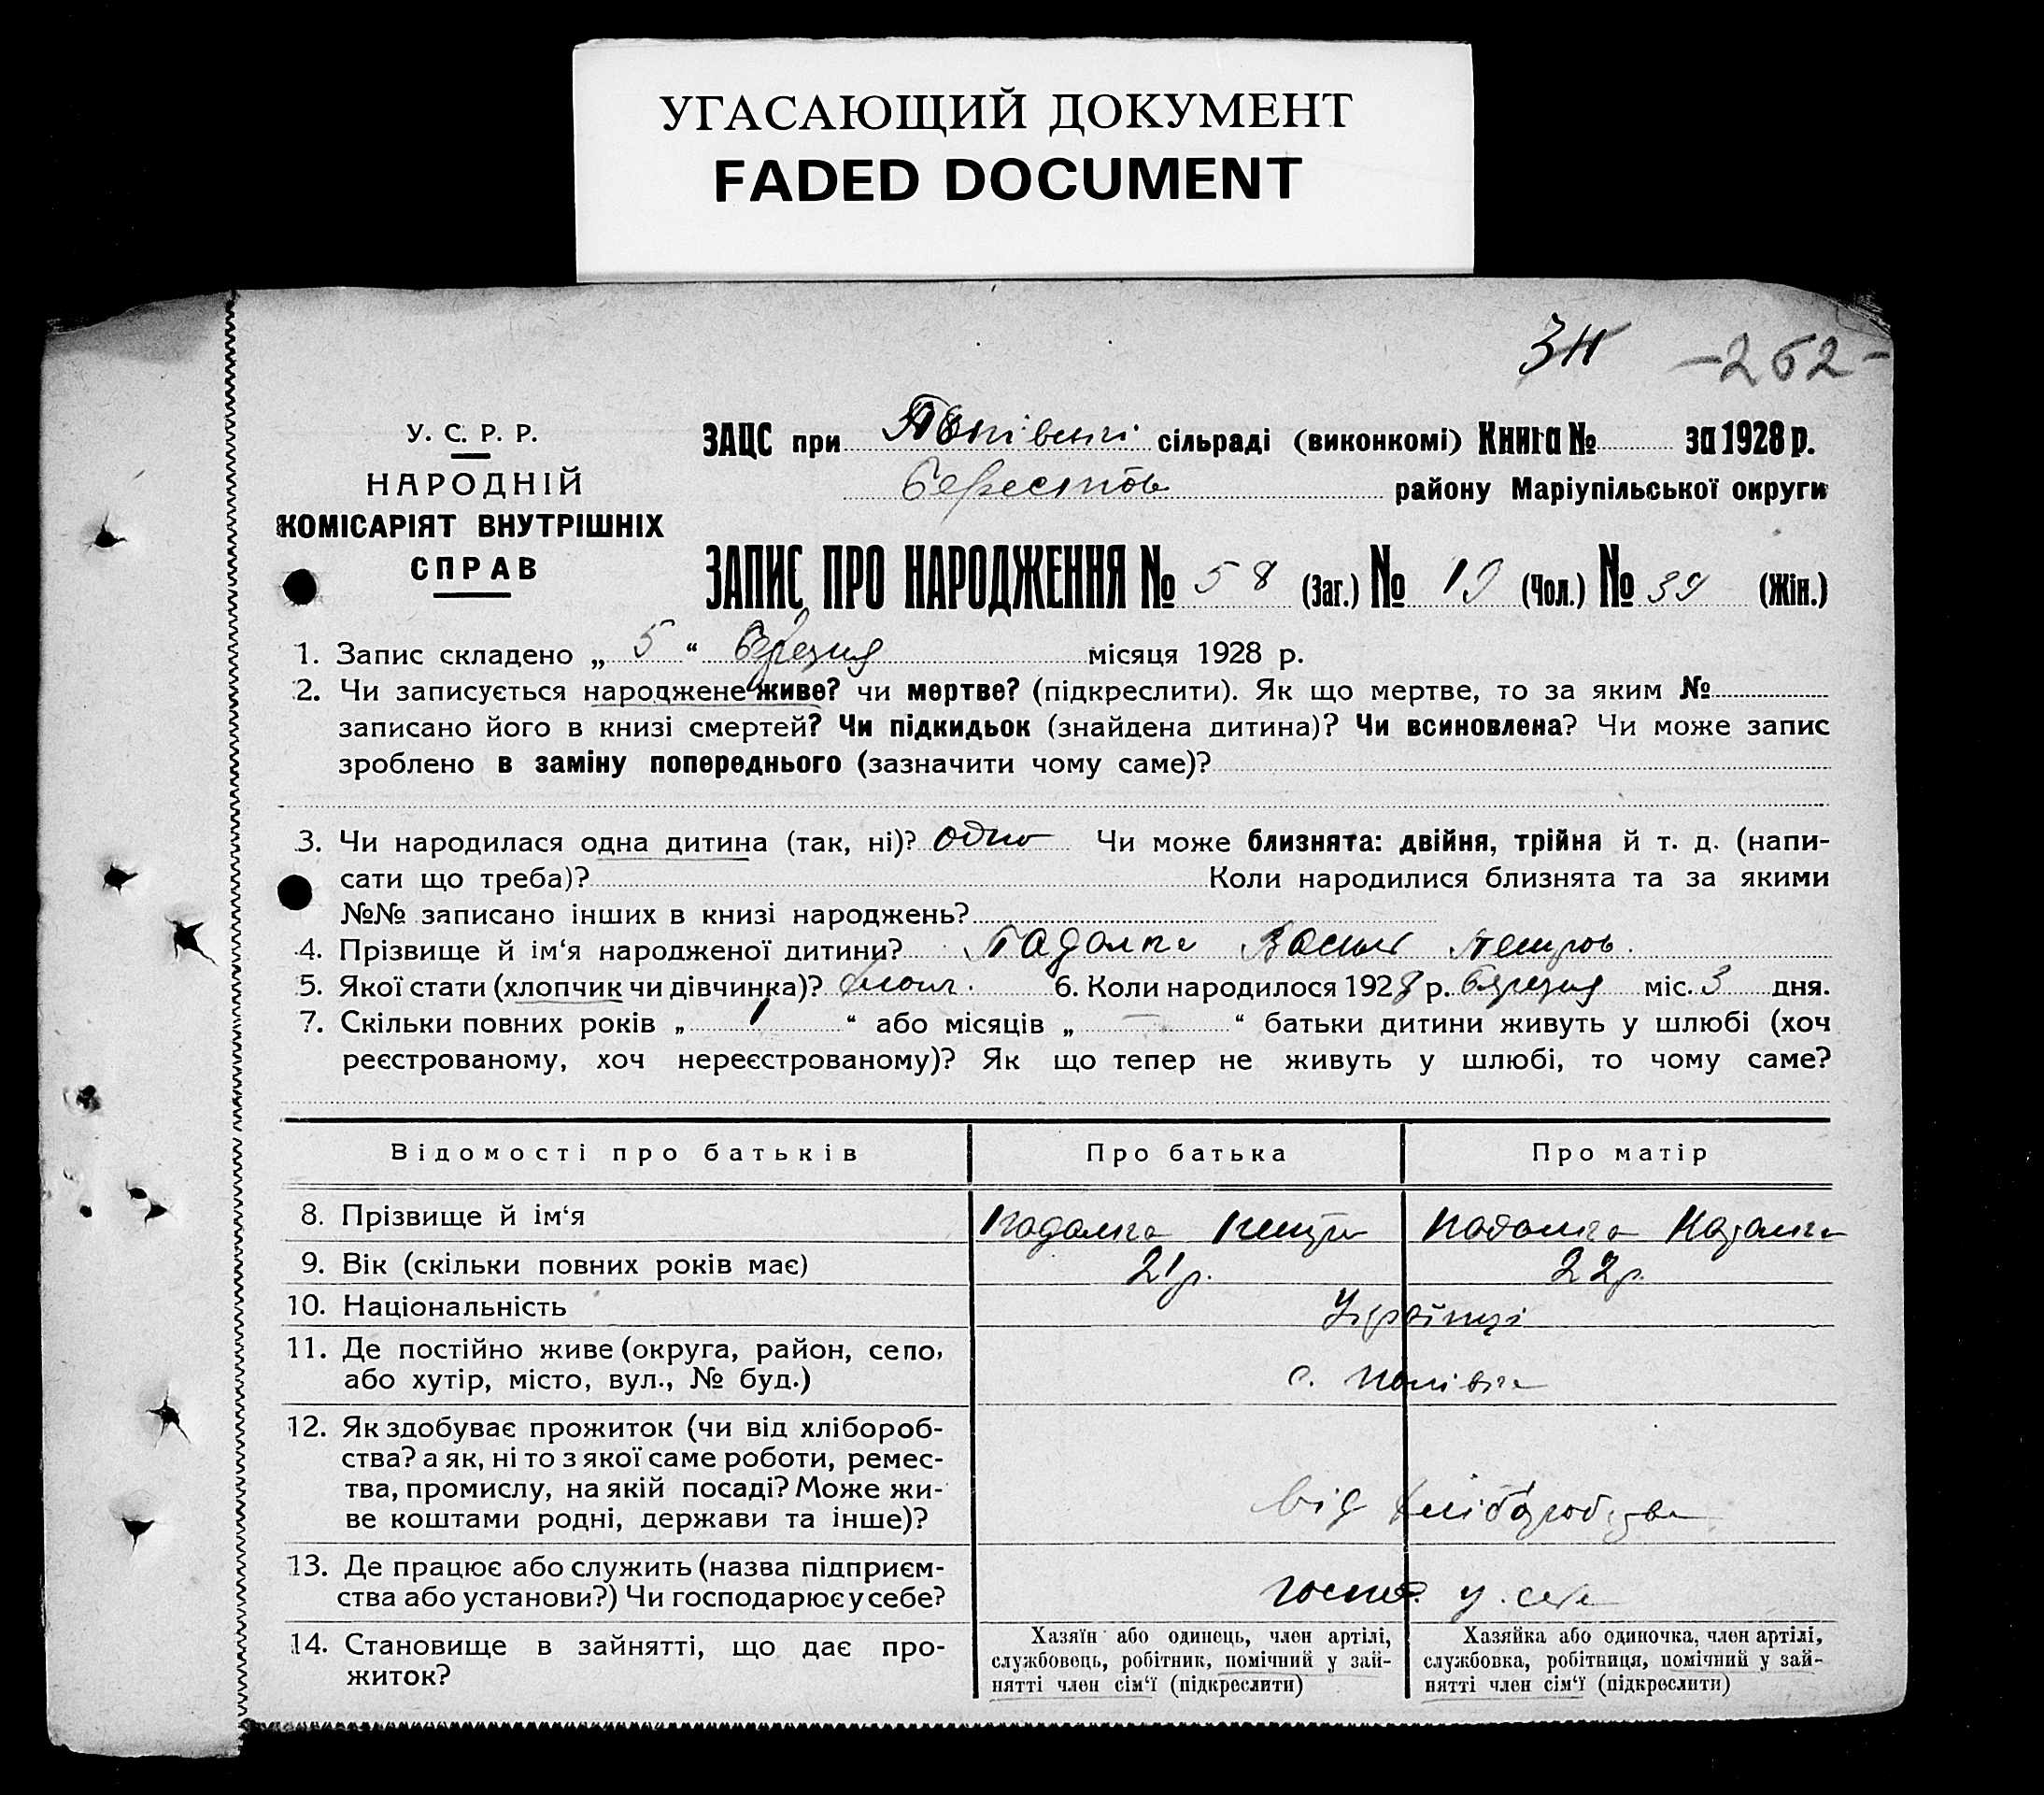 УГАСАЮЩИЙ ДОКУМЕНТ
FADED DOCUMENT
-262-
У. С. Р. Р.
НАРОДНІЙ
КОМІСАРІЯТ ВНУТРІШНІХ
СПРАВ
ЗАЦС при Попівській сільраді (виконкомі) Книга № за 1928 р.
Берестов району Маріупільської округи
ЗАПИС ПРО НАРОДЖЕННЯ № 58 (Заг.) № 19 (Чол.) № 39 (Жін.)
1. Запис складено „ 5 “ Березня місяця 1928 р.
2. Чи записується народжене живе? чи мертве? (підкреслити). Як що мертве, то за яким №
записано його в книзі смертей? Чи підкидьок (знайдена дитина)? Чи всиновлена? Чи може запис
зроблено в заміну попереднього (зазначити чому саме)?
3. Чи народилася одна дитина (так, ні)? одно Чи може близнята: двійня, трійня й т. д. (напи-
сати що треба)? Коли народилися близнята та за якими
№№ записано інших в книзі народжень?
4. Прізвище й ім‘я народженої дитини? Падалка Василь Петров.
5. Якої стати (хлопчик чи дівчинка)? 6. Коли народилося 1928 р. Березня міс. 3 дня.
7. Скільки повних років „ 1 “ або місяців „ — “ батьки дитини живуть у шлюбі (хоч
реєстрованому, хоч нереєстрованому)? Як що тепер не живуть у шлюбі, то чому саме?
Відомості про батьків Про батька Про матір
8. Прізвище й ім‘я Падалка Петро Падалка
9. Вік (скільки повних років має) 21 р. 22 р.
10. Національність Українці
11. Де постійно живе (округа, район, село,
або хутір, місто, вул., № буд.) с. Попівка
12. Як здобуває прожиток (чи від хлібороб-
ства? а як, ні то з якої саме роботи, ремес-
тва, промислу, на якій посаді? Може жи-
ве коштами родні, держави та інше)? від хліборобства
13. Де працює або служить (назва підприєм-
ства або установи?) Чи господарює у себе? госпо. у себе
14. Становище в зайнятті, що дає про-
житок?
Хазяїн або одинець, член артілі,
службовець, робітник, помічний у зай-
нятті член сім‘ї (підкреслити)
Хазяйка або одиночка, член артілі,
службовка, робітниця, помічний у зай-
нятті член сім‘ї (підкреслити)